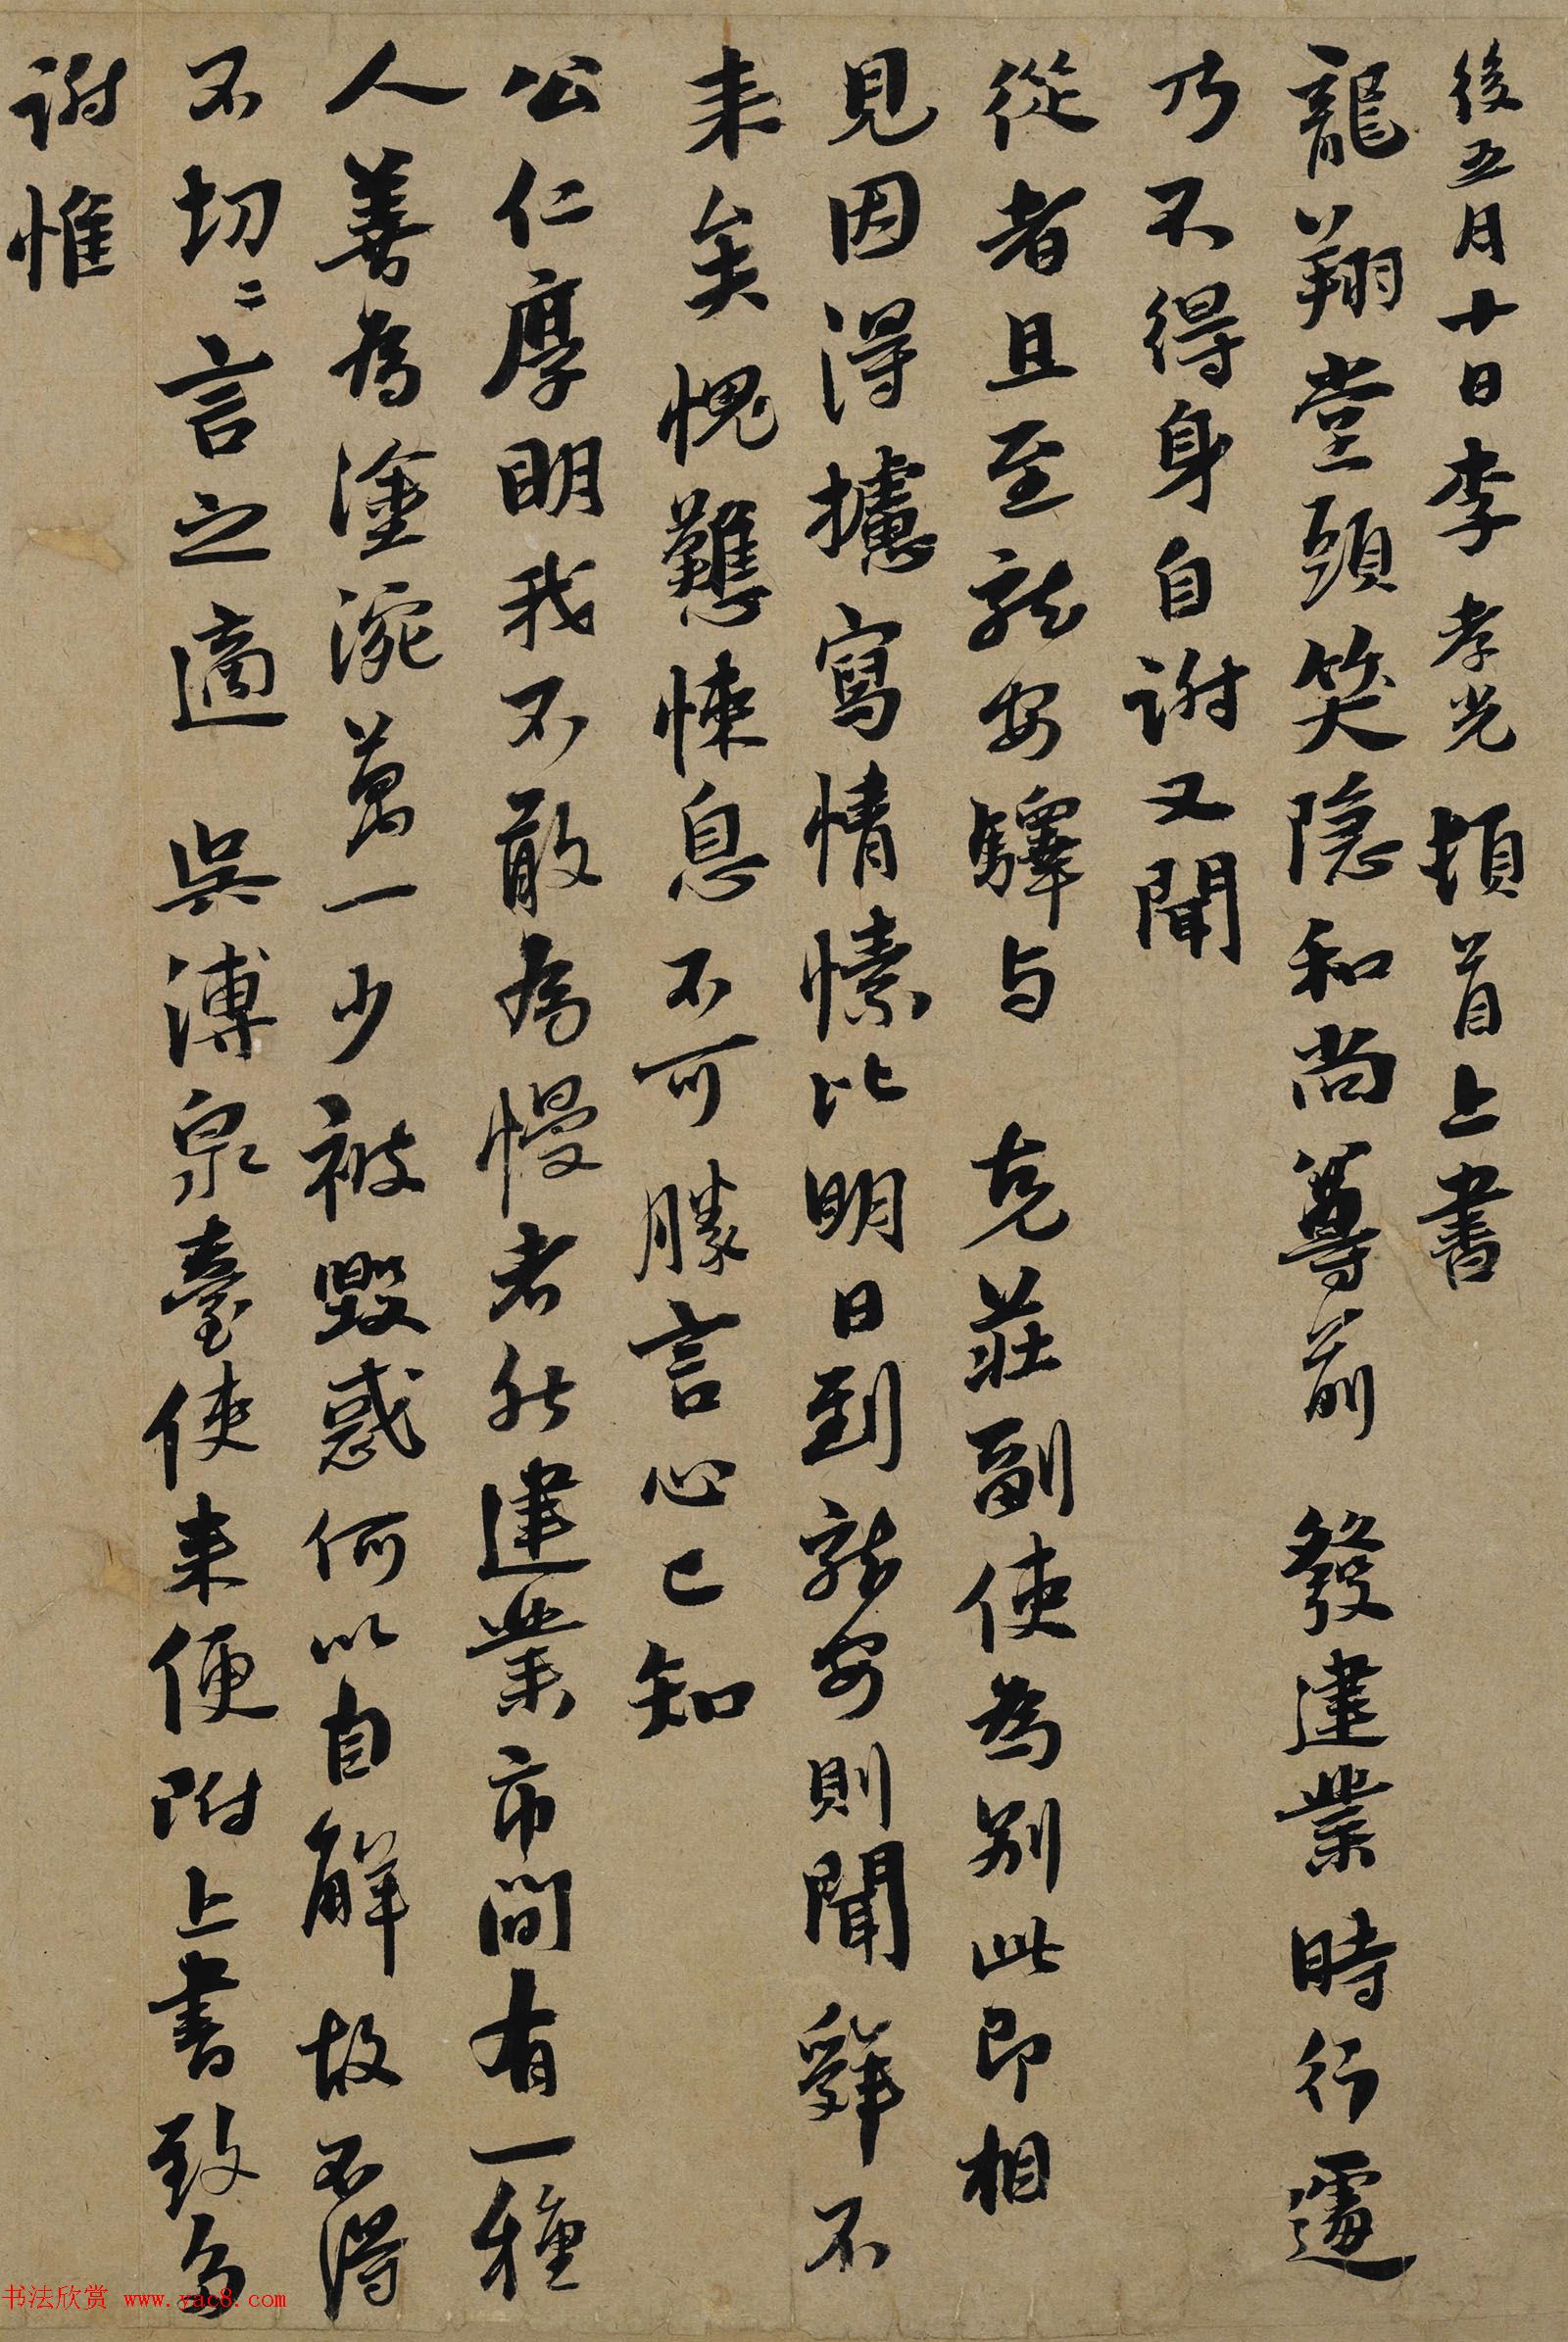 後五月十日李孝光頓首上書
龍翔堂頭笑隱和尚尊前 發建業時行遽
乃不得身自謝又聞
從者且至龍安驛与 克莊副使為別此即相
見因得攄寫情愫比明日到龍安則聞辭不
来矣愧戁悚息不可勝言心已知
公仁厚明我不敢為慢者然建業市間有一種
人善為塗涴萬一少被毀惑何以自解故不得
不切〻言之適 吳溥泉臺使来便附上書致多
謝惟
书法欣赏 www.yac8.com